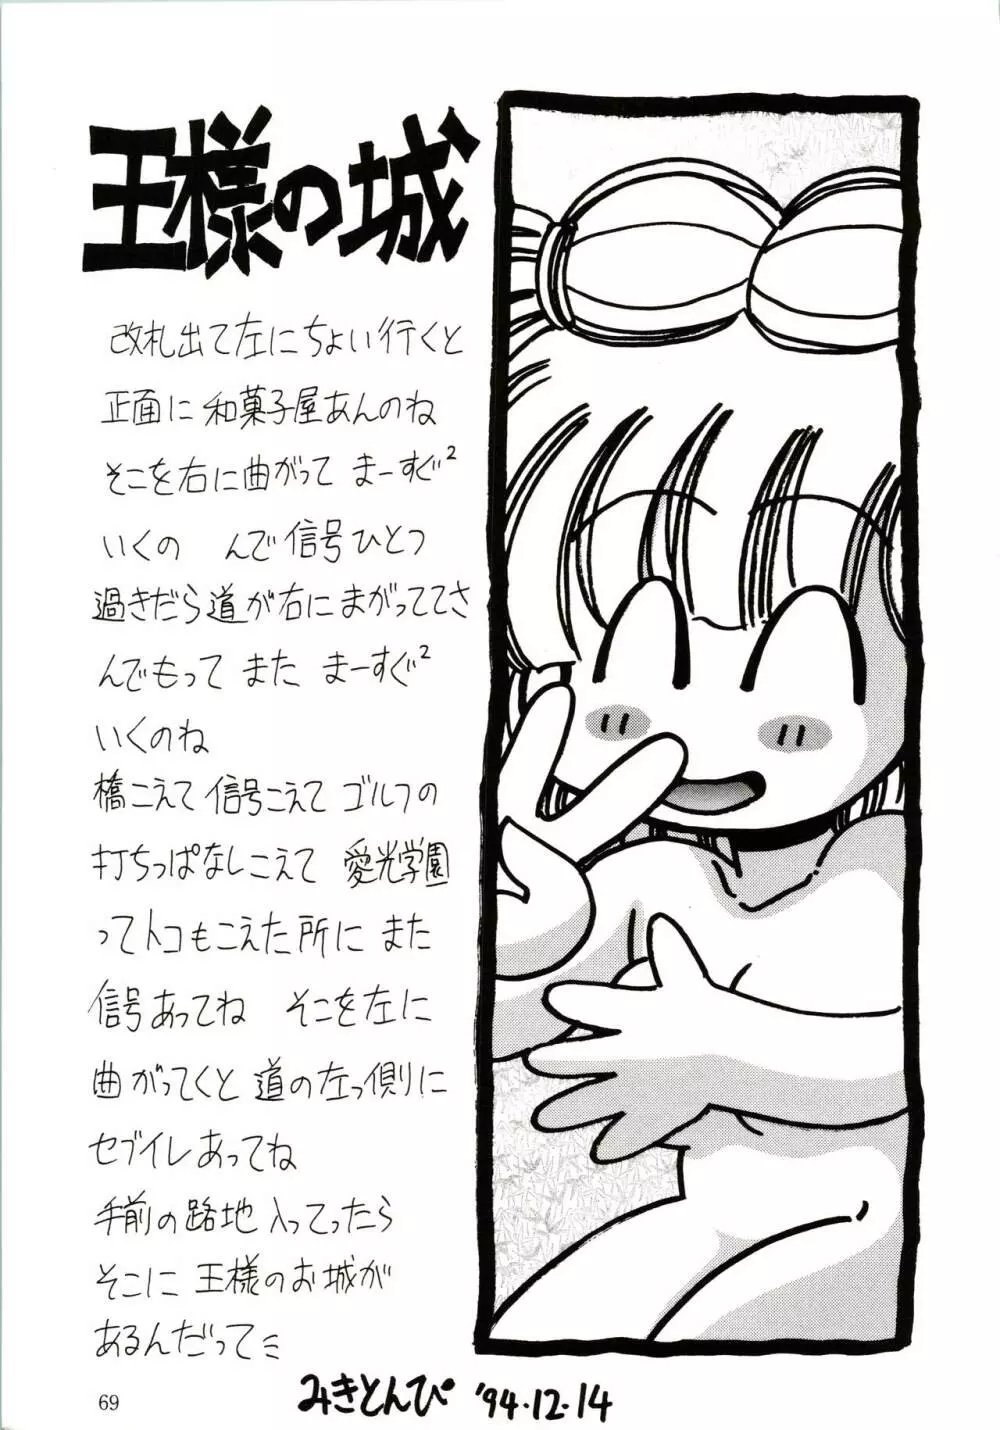 王様の城
改札出て左にちょい行くと
正面に和菓子屋あんのね
そこを右に曲がって まーすぐ²
いくの んで信号ひとつ
過きだら道が右にまがっててさ
んでもって また まーすぐ²
いくのね
橋こえて信号こえてゴルフの
打ちっぱなしこえて 愛光学園
ってトコもこえた所に また
信号あってね そこを左に
曲がってくと 道の左っ側に
セブイレあってね
手前の路地 入ってったら
そこに 王様のお城が
あるんだって
みきとんぴ '94.12.14
69